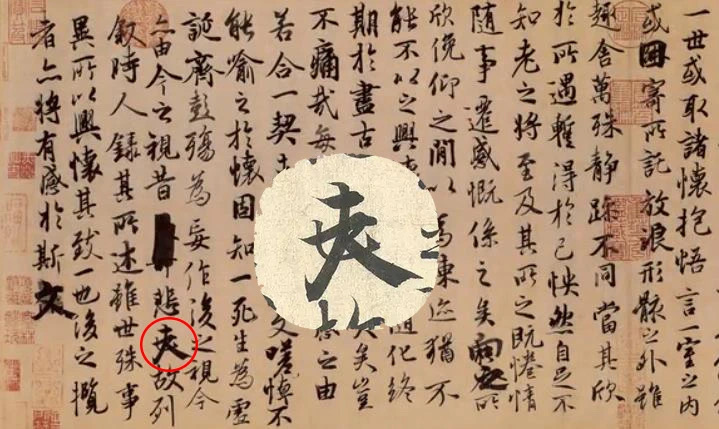 一世或取諸懷抱悟言一室之內
或因寄所託放浪形骸之外雖
趣舍萬殊靜躁不同當其欣
於所遇蹔得於己怏然自足不
知老之將至及其所之既惓情
隨事遷感慨係之矣向之所
欣俛仰之閒以為陳迹猶不
能不以之興隨化終
期於盡古矣豈
不痛哉每之由
若合一契文嗟悼不
能喻之於懷固知一死生為虛
誕齊彭殤為妄作後之視今
亦由今之視昔悲夫故列
敘時人錄其所述雖世殊事
異所以興懷其致一也後之攬
者亦將有感於斯文
夫